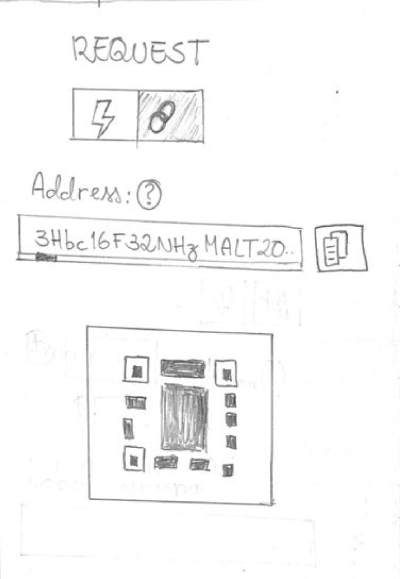 REQUEST
Address: ?
3Hbc16F32NHzMALT20..